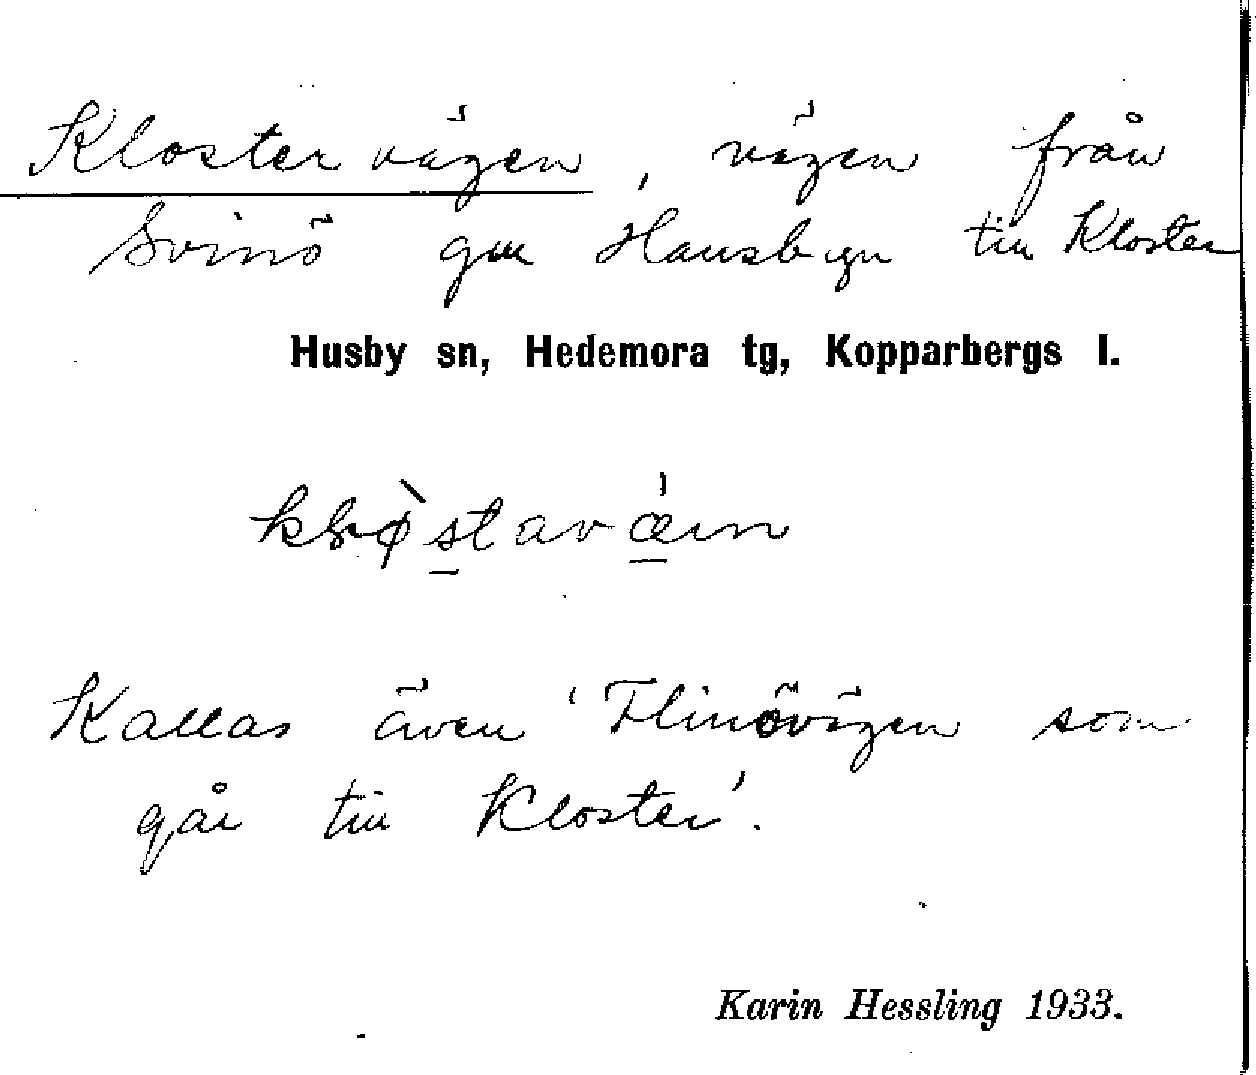 Klostervägen, vägen från
Svinö gm Hansbyn till Kloster
Husby sn, Hedemora tg, Kopparbergs l.
Kallas även 'Flinövägen som
går till Kloster'.
Karin Hessling 1933.